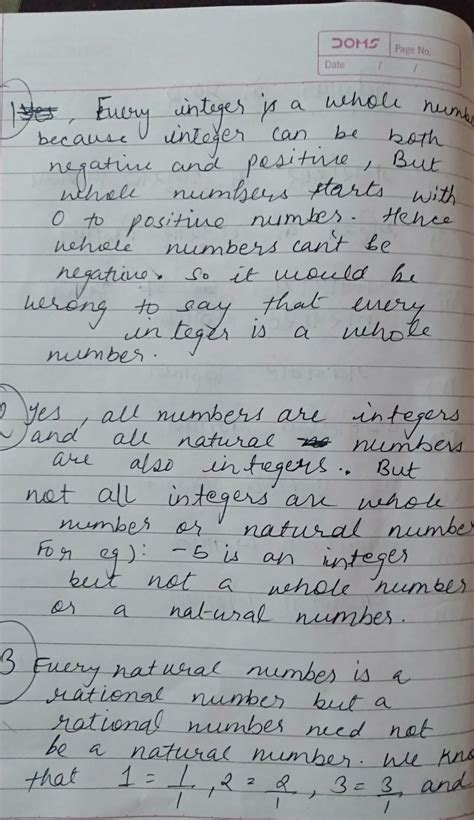 DOMS
Page No.
Date / /
1 , Every integer is a whole number
because integer can be both
negative and positive, But
whole numbers starts with
0 to positive number. Hence
whole numbers can't be
negative. So it would be
wrong to say that every
integer is a whole
number.
Yes, all numbers are integers
and all natural numbers
are also integers. But
not all integers are whole
number or natural number
For eg): -5 is an integer
but not a whole number
or a natural number.
3 Every natural number is a
rational number but a
rational number need not
be a natural number. We kno
that 1 = 1/1, 2 = 2/1, 3 = 3/1, and